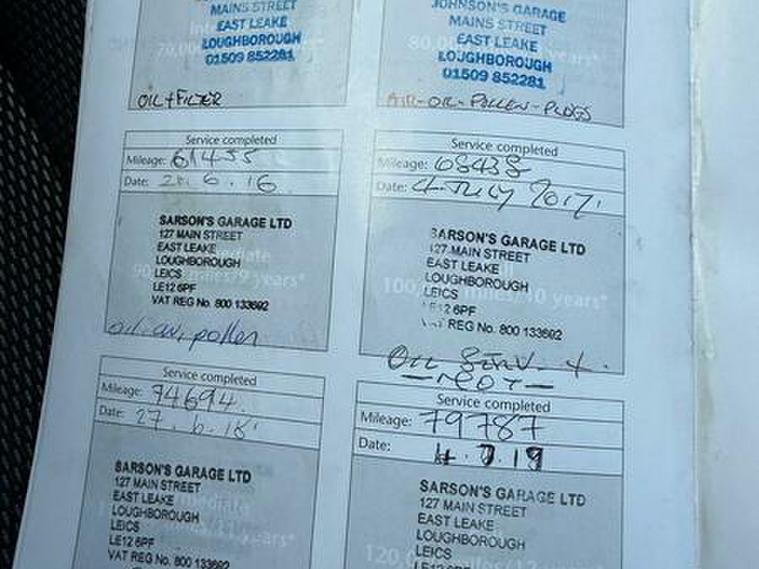 MAINS STREET
EAST LEAKE
LOUGHBOROUGH
01509 852281
OIL + FILTER
JOHNSON'S GARAGE
MAINS STREET
EAST LEAKE
LOUGHBOROUGH
01509 852281
AIR-OIL-POLLEN-PLUGS
Service completed
Mileage: 61455
Date: 28.6.16
SARSON'S GARAGE LTD
127 MAIN STREET
EAST LEAKE
LOUGHBOROUGH
LEICS
LE12 6PF
VAT REG No. 800 133692
oil, air, pollen
Service completed
Mileage: 68438
Date: 4 JULY 2017
SARSON'S GARAGE LTD
127 MAIN STREET
EAST LEAKE
LOUGHBOROUGH
LEICS
LE12 6PF
REG No. 800 133692
OIL SERV. +
- MOT -
Service completed
Mileage: 74694
Date: 27.6.18
SARSON'S GARAGE LTD
127 MAIN STREET
EAST LEAKE
LOUGHBOROUGH
LEICS
LE12 6PF
VAT REG No. 800 133692
Service completed
Mileage: 79787
Date: 4.7.19
SARSON'S GARAGE LTD
127 MAIN STREET
EAST LEAKE
LOUGHBOROUGH
LEICS